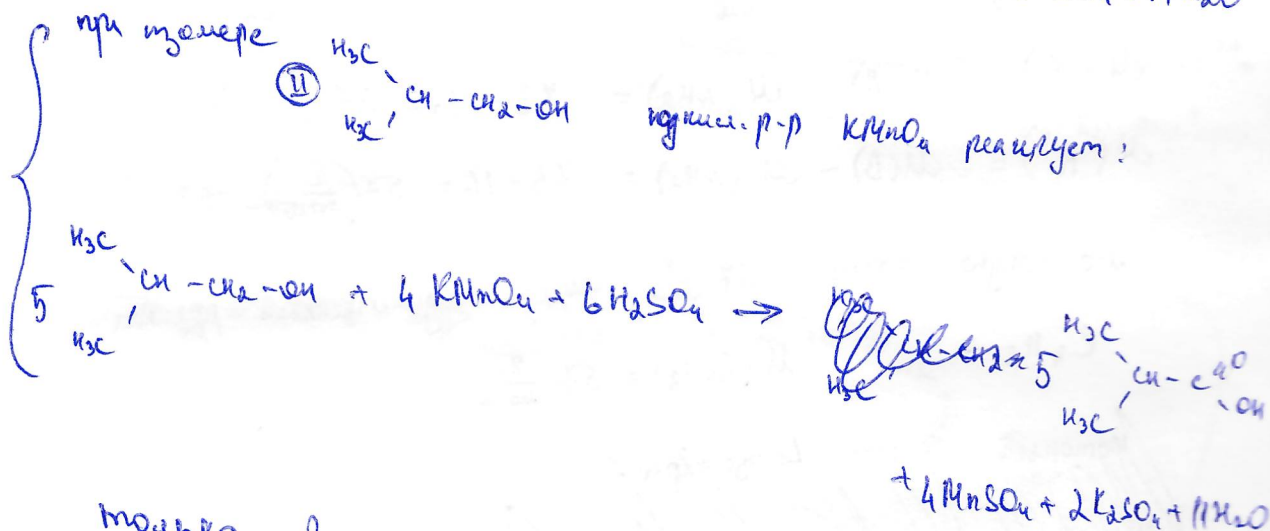 при изомере
II
H3C
CH - CH2-OH подкисл. р-р KMnO4 реагирует:
H3C
H3C
5 CH - CH2 - OH + 4 KMnO4 + 6 H2SO4 → 5 CH - C O
H3C
H3C
OH
H3C
+ 4MnSO4 + 2K2SO4 + 11H2O
только